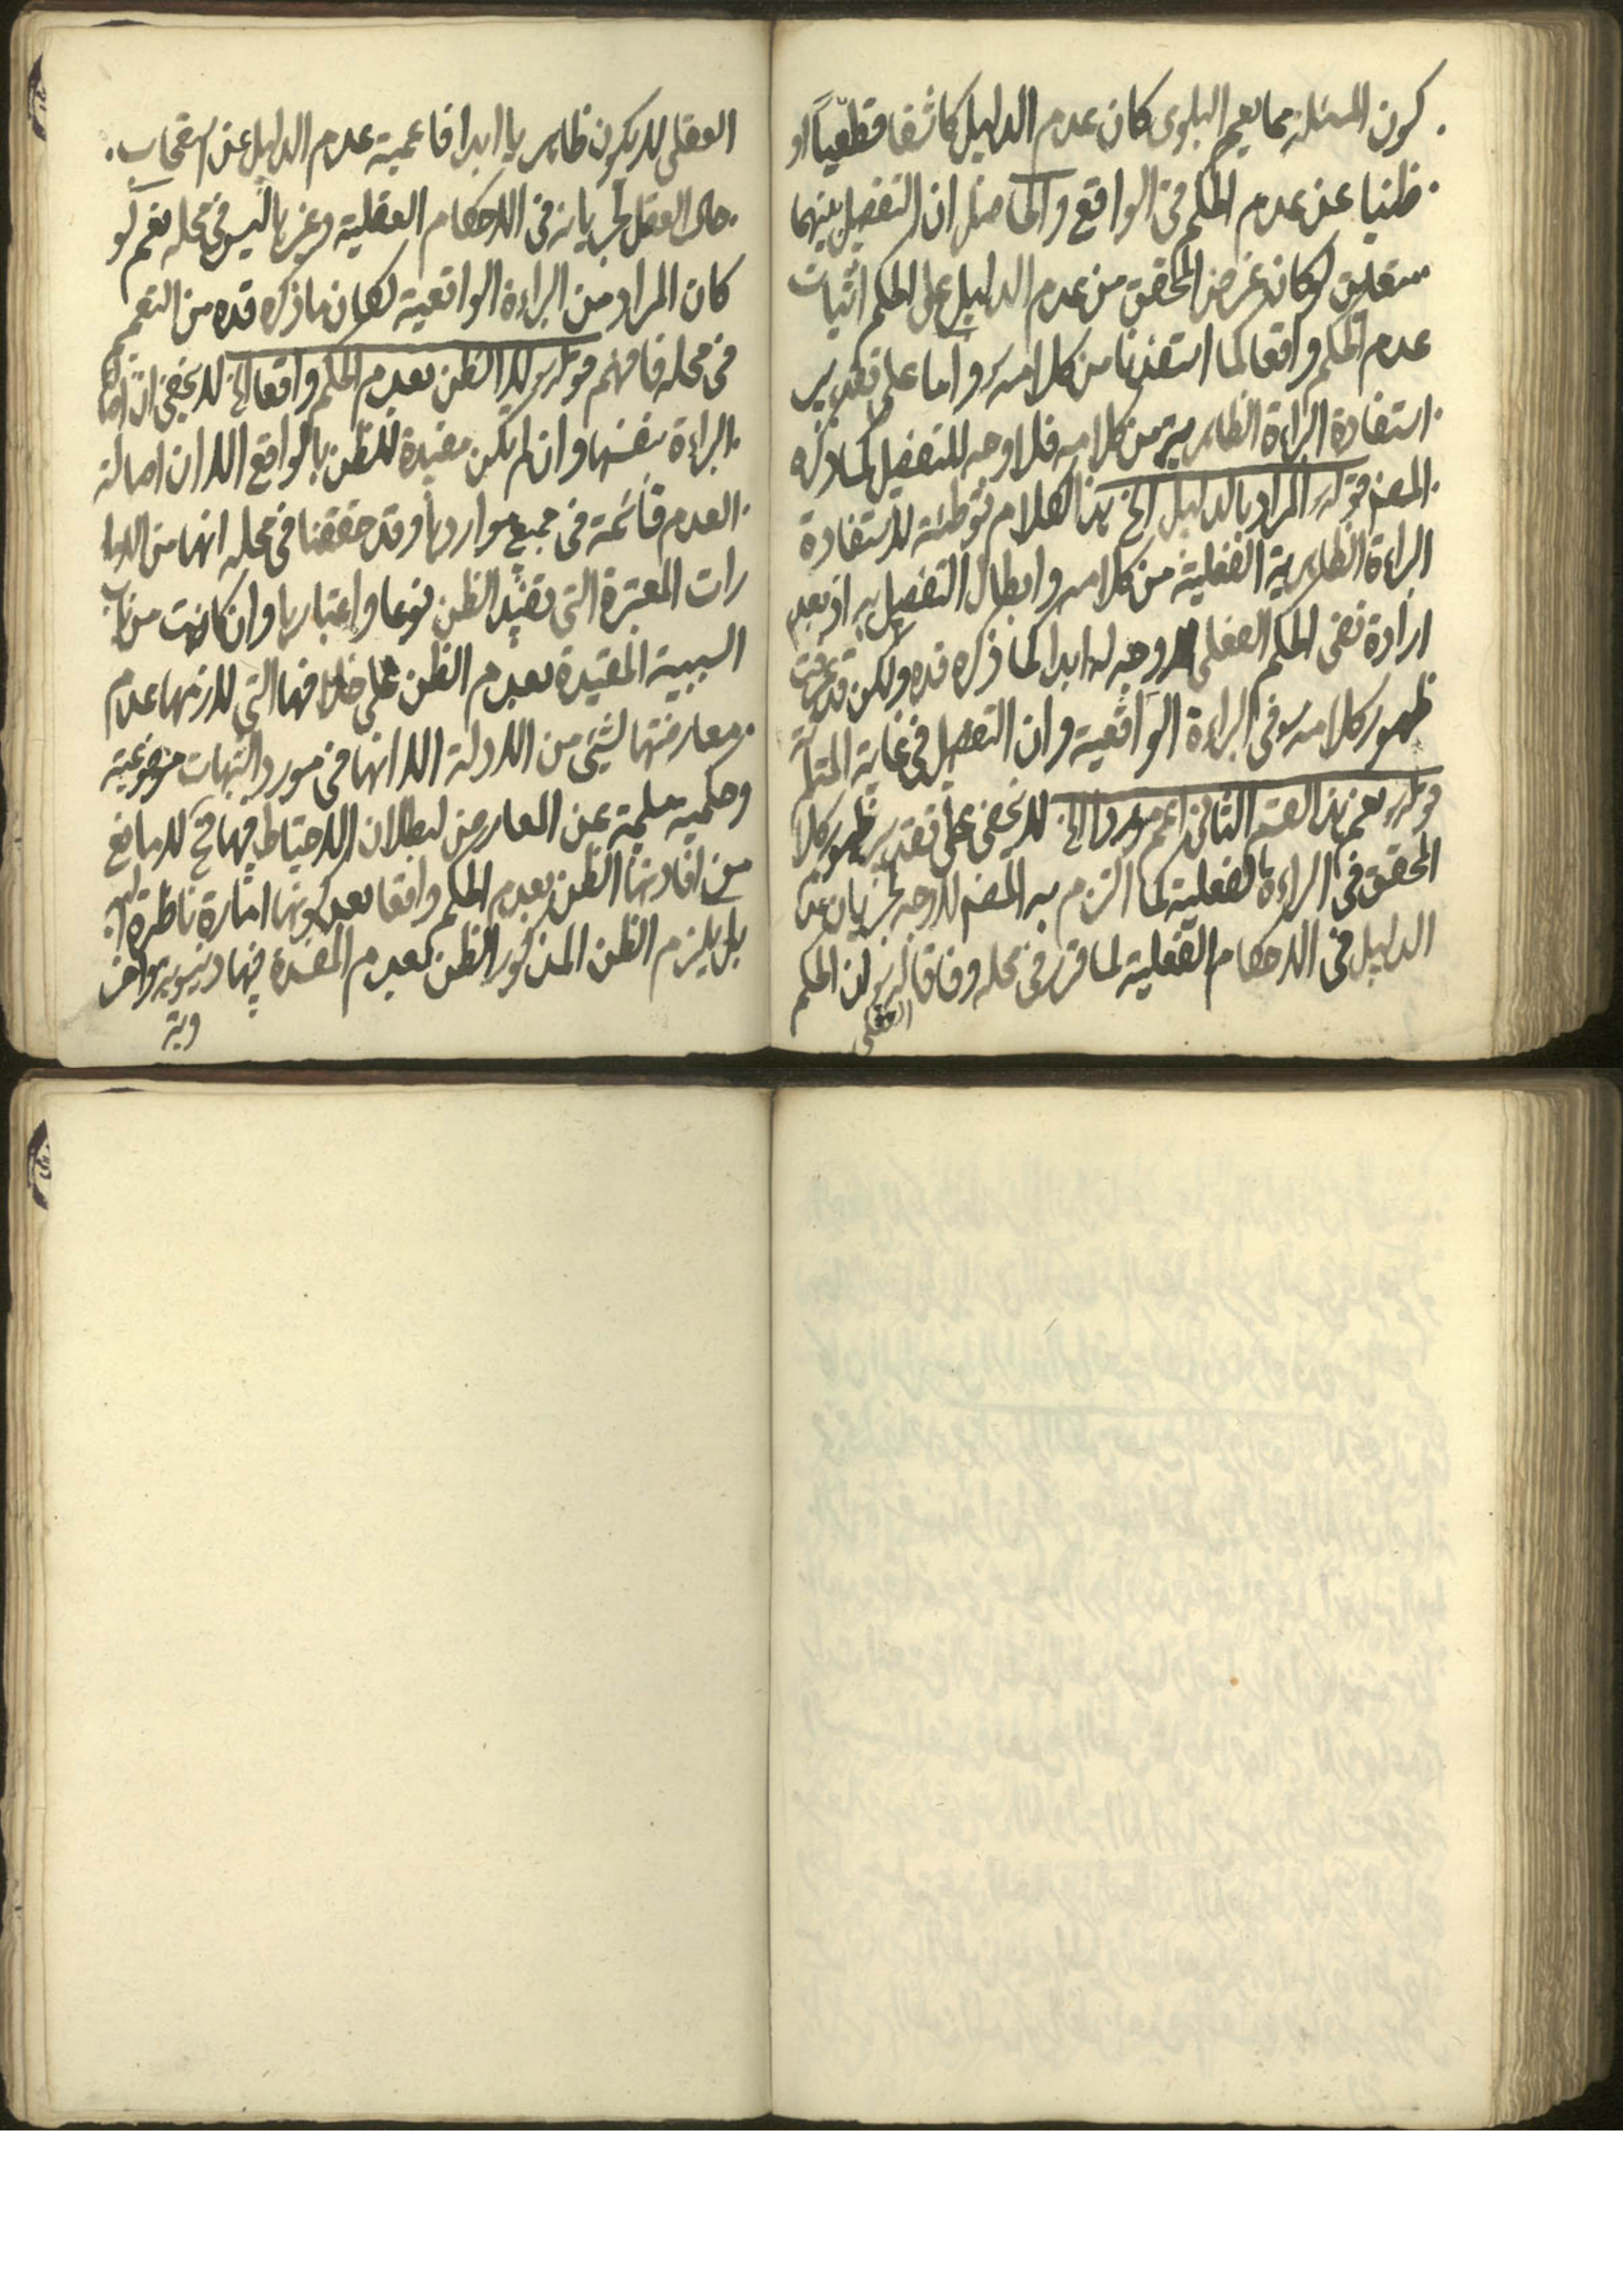 كون المسئلة مما يعم البلوى كان عدم الدليل كاشفا قطعياً او
ظنيا عن عدم الحكم في الواقع والحاصل ان التفصيل بينهما
متعلق لو كان غرض المحقق من عدم الدليل على الحكم اثبات
عدم الحكم واقعا كما استفدنا من كلامه ره واما على تقدير
استفادة البراءة الظاهرية من كلامه فلا وجه للتفصيل كما ذكره
المصنف قوله المراد بالدليل الخ هذا الكلام توطئة لاستفادة
البراءة الظاهرية الفعلية من كلامه وابطال التفصيل به اذ بعد
ارادة نفى الحكم الفعلى لا وجه له ابدا كما ذكره قده ولكن قد عرفت
ظهور كلامه في البراءة الواقعية وان التفصيل في غاية المتانة
قوله نعم هذا القسم الثانى اعم موردا الخ لا يخفى على تقدير ظهور كلام
المحقق في البراءة الفعلية كما التزم به المصنف لا وجه لجريان عدم
الدليل في الاحكام العقلية لما قرر في محله وفاقا له ره لان الحكم
العقلى
العقلى لا يكون ظاهريا ابدا فاعمية عدم الدليل عن استصحاب
حال العقل لجريانه في الاحكام العقلية وغيرها ليس في محله نعم لو
كان المراد من البراءة الواقعية لكان ما ذكره قده من التعميم
في محله فافهم قوله ره الظن بعدم الحكم واقعا الخ لا يخفى ان اصالة
البراءة بنفسها وان لم يكن مفيدة للظن بالواقع الا ان اصالة
العدم قائمة في جميع مواردها وقد حققنا في محله انها من الاما
رات المعتبرة التى تفيد الظن نوعا واعتبارها وان كانت من باب
السببية المقيدة بعدم الظن على خلافها التى لازمها عدم
معارضتها لشيئ من الادلة الا انها في مورد الشبهات موضوعية
وحكمية سليمة عن المعارض لبطلان الاحتياط فيها فح لا مانع
من افادتها الظن بعدم الحكم واقعا بعد كونها امارة ناظرة اليه
بل يلزم الظن المذكور الظن بعدم المفسدة فيها دنيوية واخر
وية